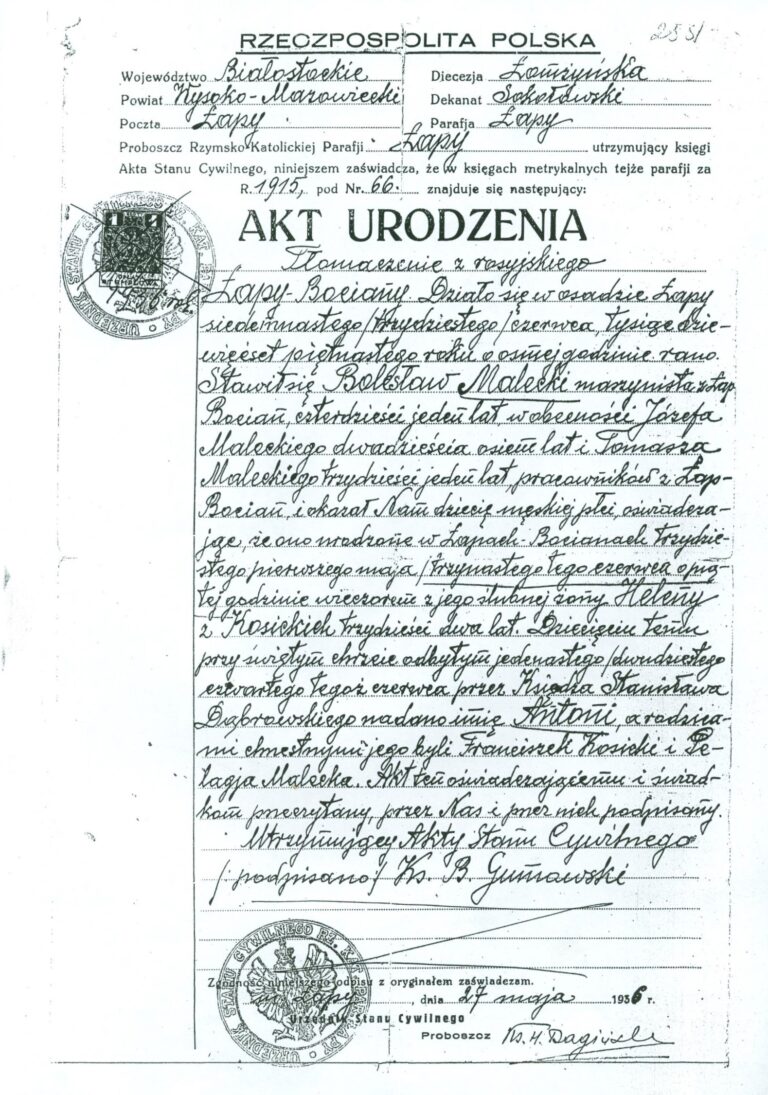 255/
RZECZPOSPOLITA POLSKA
Województwo Białostockie Diecezja Łomżyńska
Powiat Wysoko-Mazowiecki Dekanat Sokołowski
Poczta Łapy Parafja Łapy
Proboszcz Rzymsko-Katolickiej Parafji Łapy utrzymujący księgi
Akta Stanu Cywilnego, niniejszem zaświadcza, że w księgach metrykalnych tejże parafji za
R. 1915, pod Nr. 66. znajduje się następujący:
AKT URODZENIA
Tłomaczenie z rosyjskiego
Łapy-Bociany. Działo się w osadzie Łapy
siedemnastego /trzydziestego/ czerwca, tysiąc dzie-
więćset piętnastego roku o ósmej godzinie rano.
Stawił się Bolesław Malecki maszynista z Łap
Bocian, czterdzieści jeden lat, w obecności Józefa
Maleckiego dwadzieścia osiem lat i Tomasza
Maleckiego trzydzieści jeden lat, pracowników z Łap-
Bocian, i okazał Nam dziecię męskiej płci, oświadcza-
jąc, że ono urodzone w Łapach-Bocianach trzydzie-
stego pierwszego maja /trzynastego tego czerwca o pią-
tej godzinie wieczorem z jego ślubnej żony Heleny
z Kosickich trzydzieści dwa lat. Dziecięciu temu
przy świętym chrzcie odbytym jedenastego /dwudziestego
czwartego tegoż czerwca przez Księdza Stanisława
Dąbrowskiego nadano imię Antoni, a rodzica-
mi chrestnymi jego byli Franciszek Kosicki i Pe-
lagja Malecka. Akt ten oświadczającemu i świad-
kom przeczytany, przez Nas i przez nich podpisany.
Utrzymujący Akty Stanu Cywilnego
/podpisano/ Ks. B. Gumowski
Zgodność niniejszego odpisu z oryginałem zaświadczam.
Łapy, dnia 27 maja 1936 r.
Urzędnik Stanu Cywilnego
Proboszcz Ks. H.
URZĘDNIK STANU CYWILNEGO RZ. KAT. PAR. ŁAPY